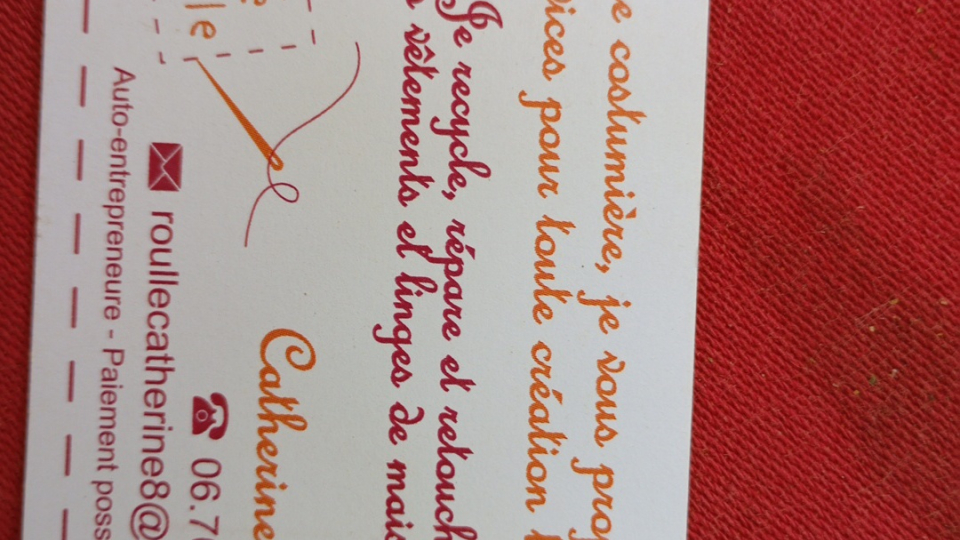 e costumière, je vous prop
vices pour toute création t
Je recycle, répare et retouch
vêtements et linges de mais
le
Catherine
06.7
roullecatherine8@
Auto-entrepreneure - Paiement poss